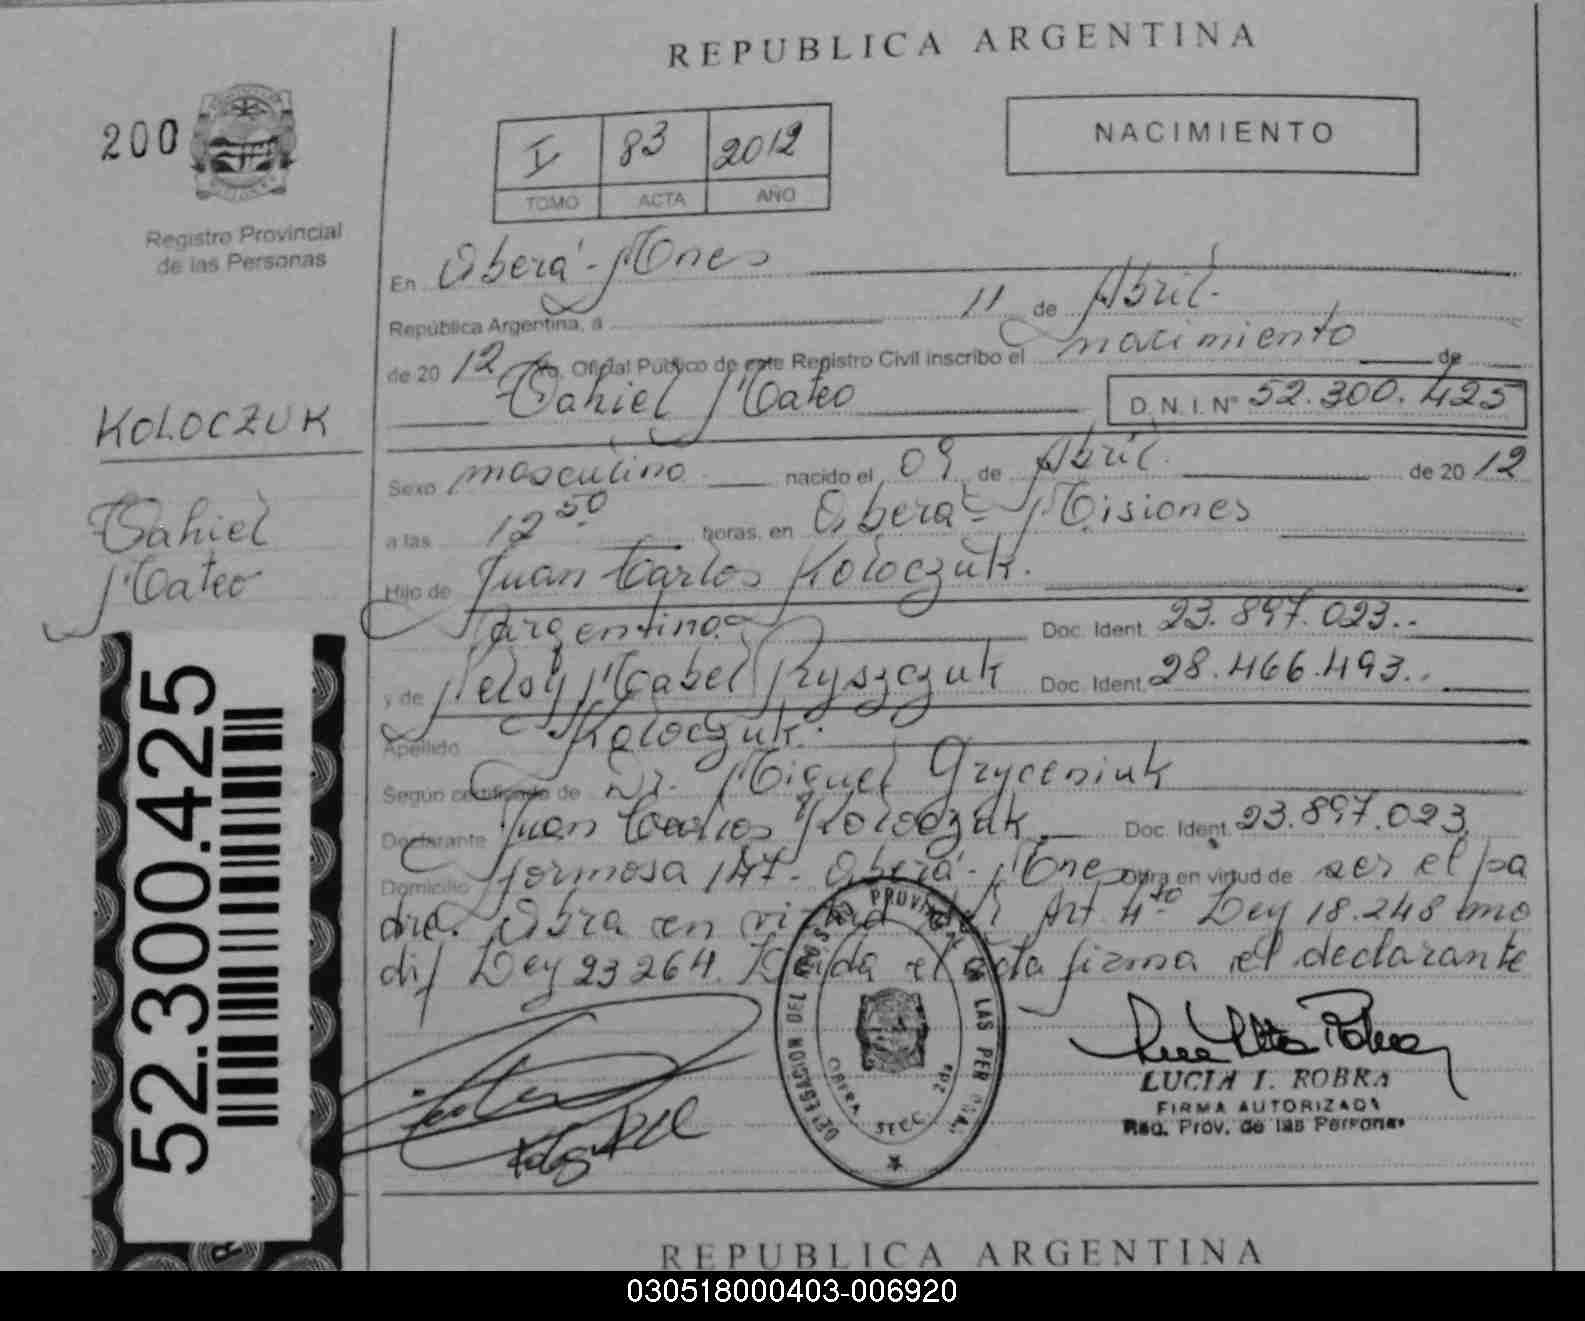 REPUBLICA ARGENTINA
200
Registro Provincial
de las Personas
I 83 2012
TOMO ACTA AÑO
NACIMIENTO
En Oberá - Mnes
República Argentina, a 11 de Abril.
de 2012 Yo, Oficial Público de este Registro Civil inscribo el nacimiento de
Tahiel Mateo D.N.I. Nº 52.300.425
KOLOCZUK
Tahiel
Mateo
Sexo masculino nacido el 09 de Abril. de 2012
a las 12 50 horas, en Oberá - Misiones
Hijo de Juan Carlos Koloczuk.
Argentino Doc. Ident. 23.897.023..
y de Nelsy Mabel Pryszczuk Doc. Ident. 28.466.493..
Apellido Koloczuk.
Según certificado de Dr. Miguel Gryceniuk
Declarante Juan Carlos Koloczuk Doc. Ident. 23.897.023
Domicilio Formosa 147 - Oberá - Mnes Obra en virtud de ser el pa
dre. Obra en virtud del Art. 4to Ley 18.248 mo
dif Ley 23264. Leída el acta firma el declarante
52.300.425
DELEGACION DEL REGISTRO PROVINCIAL DE LAS PERSONAS
OBERA SECC. 2da
LUCIA I. ROBRA
FIRMA AUTORIZADA
Reg. Prov. de las Personas
REPUBLICA ARGENTINA
030518000403-006920